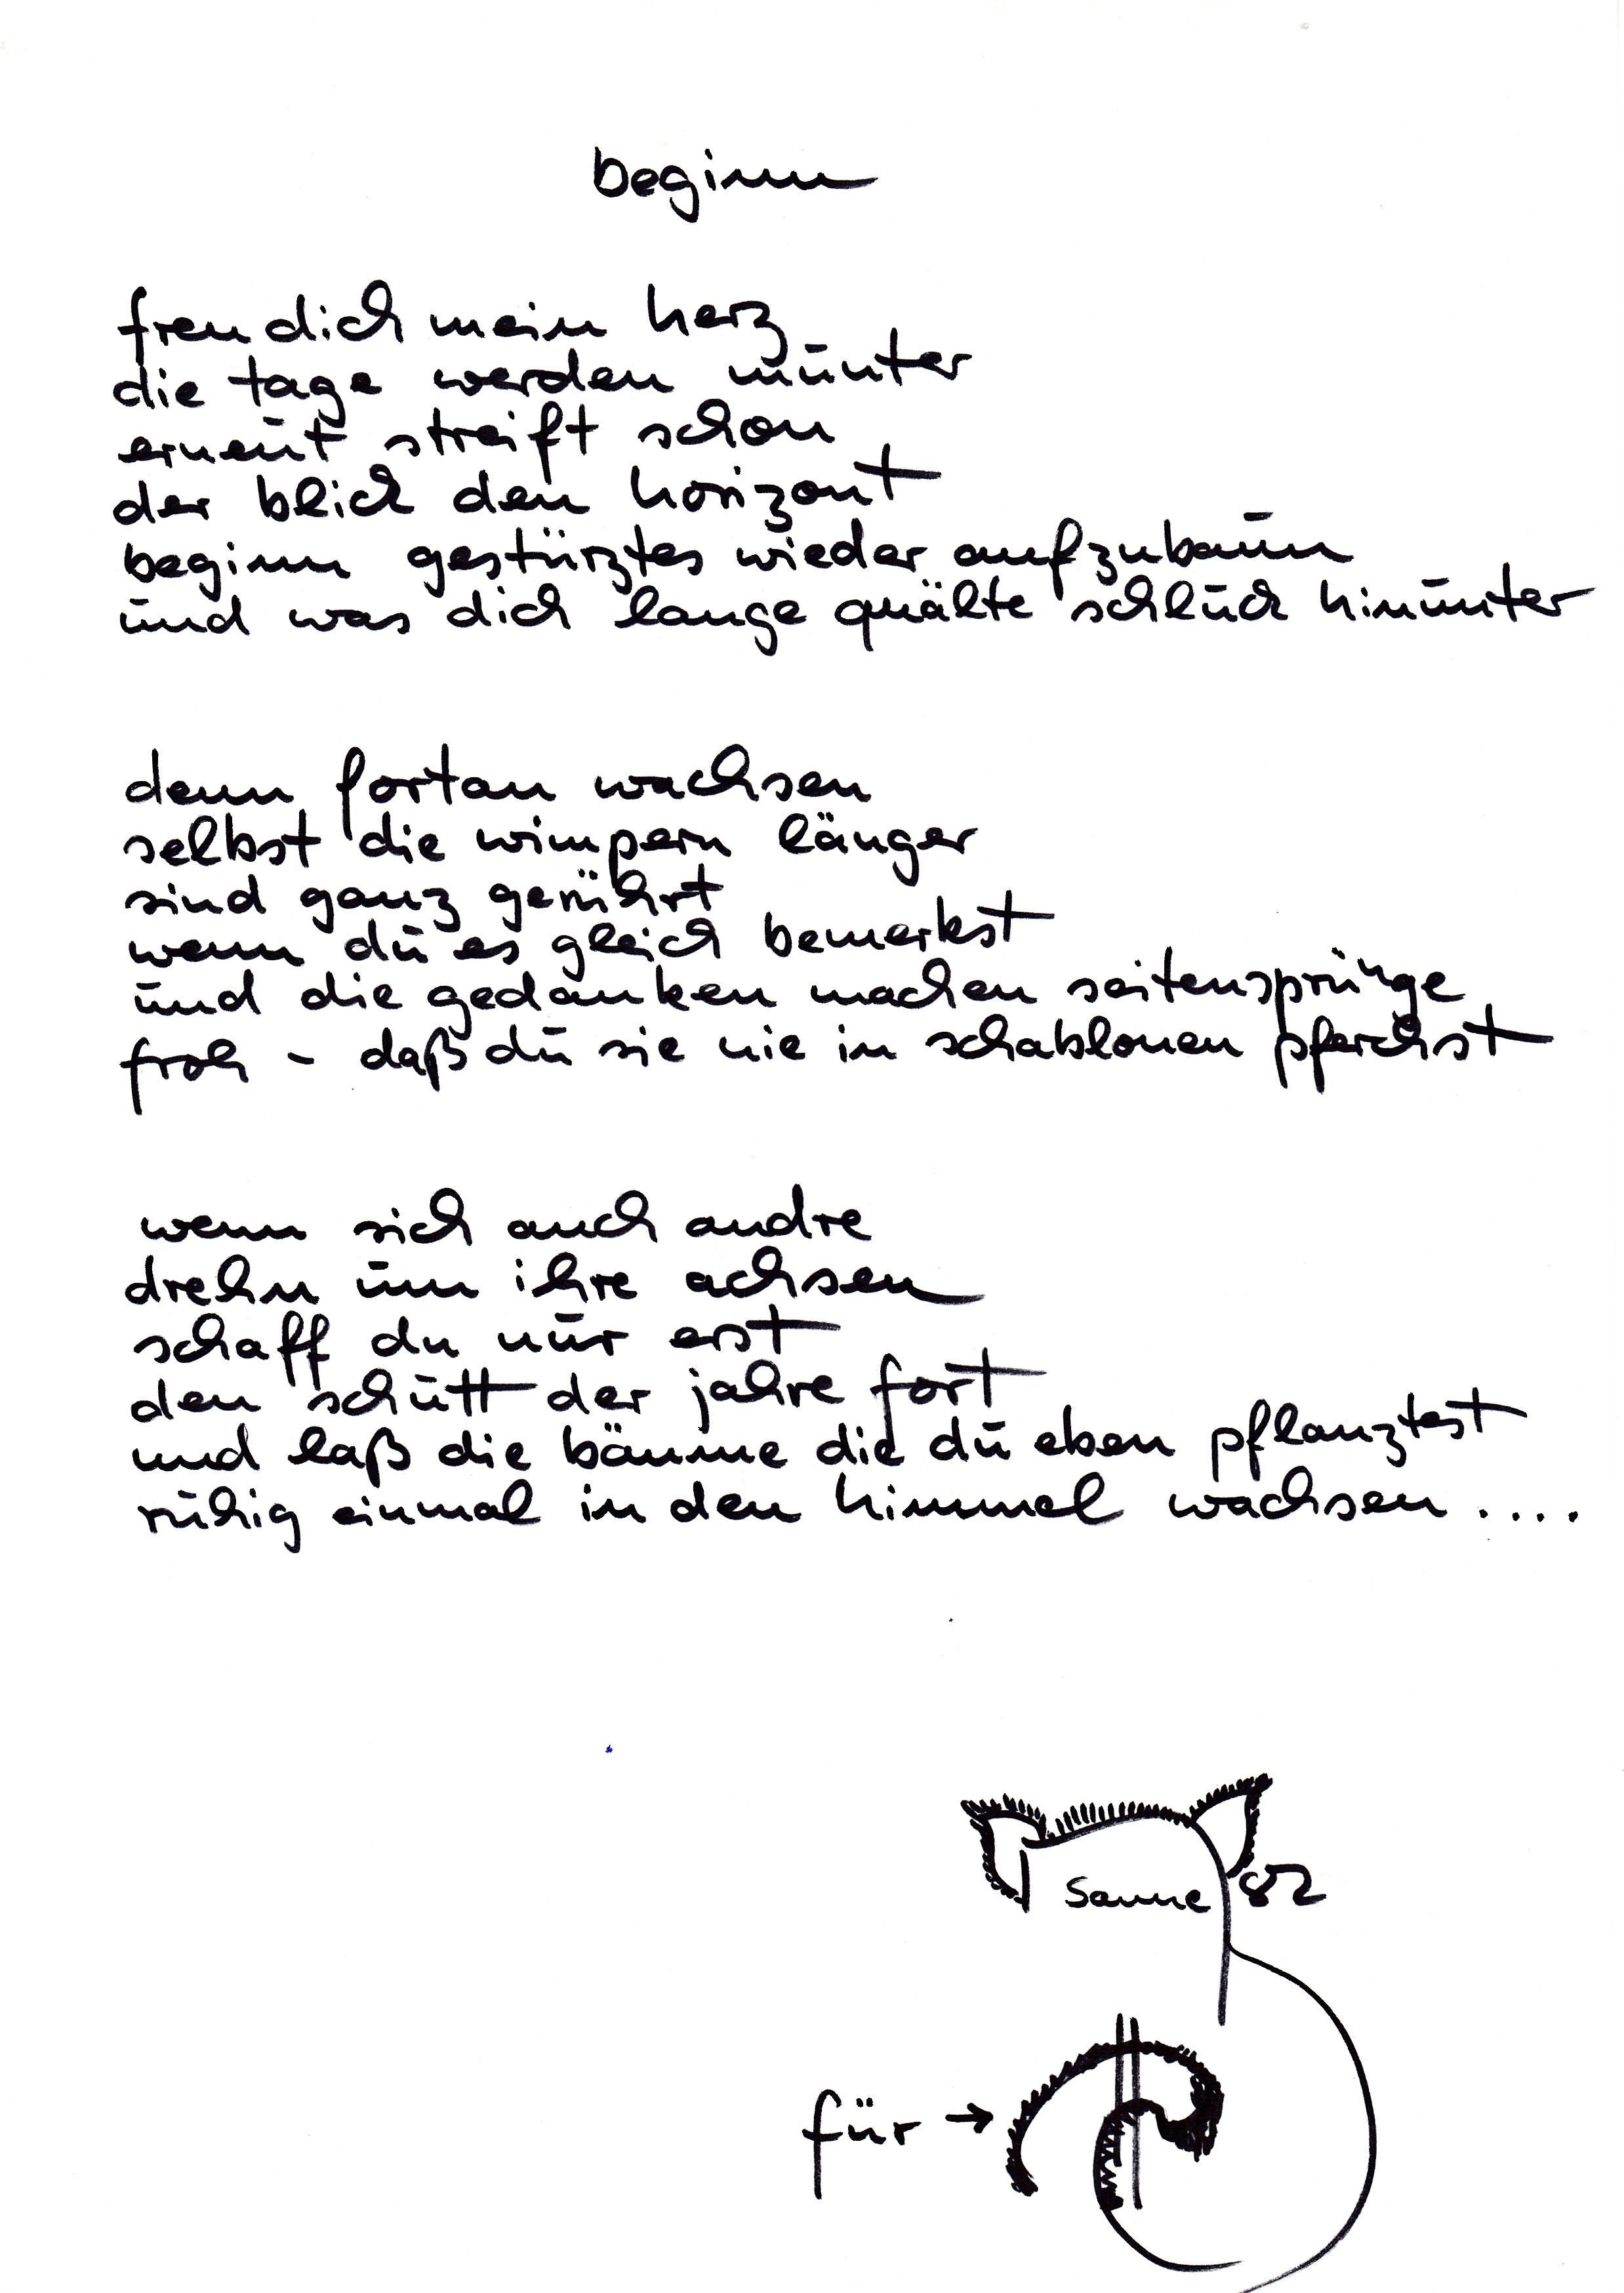 beginn
freu dich mein herz
die tage werden munter
erneut streift schon
der blick den horizont
beginn gestürztes wieder aufzubaun
und was dich lange quälte schluck hinunter
denn fortan wachsen
selbst die wimpern länger
sind ganz gerührt
wenn du es gleich bemerkst
und die gedanken machen seitensprünge
froh - daß du sie nie in schablonen pferchst
wenn sich auch andre
drehn um ihre achsen
schaff du nur erst
den schutt der jahre fort
und laß die bäume die du eben pflanztest
ruhig einmal in den himmel wachsen ....
Sanne 82
für →